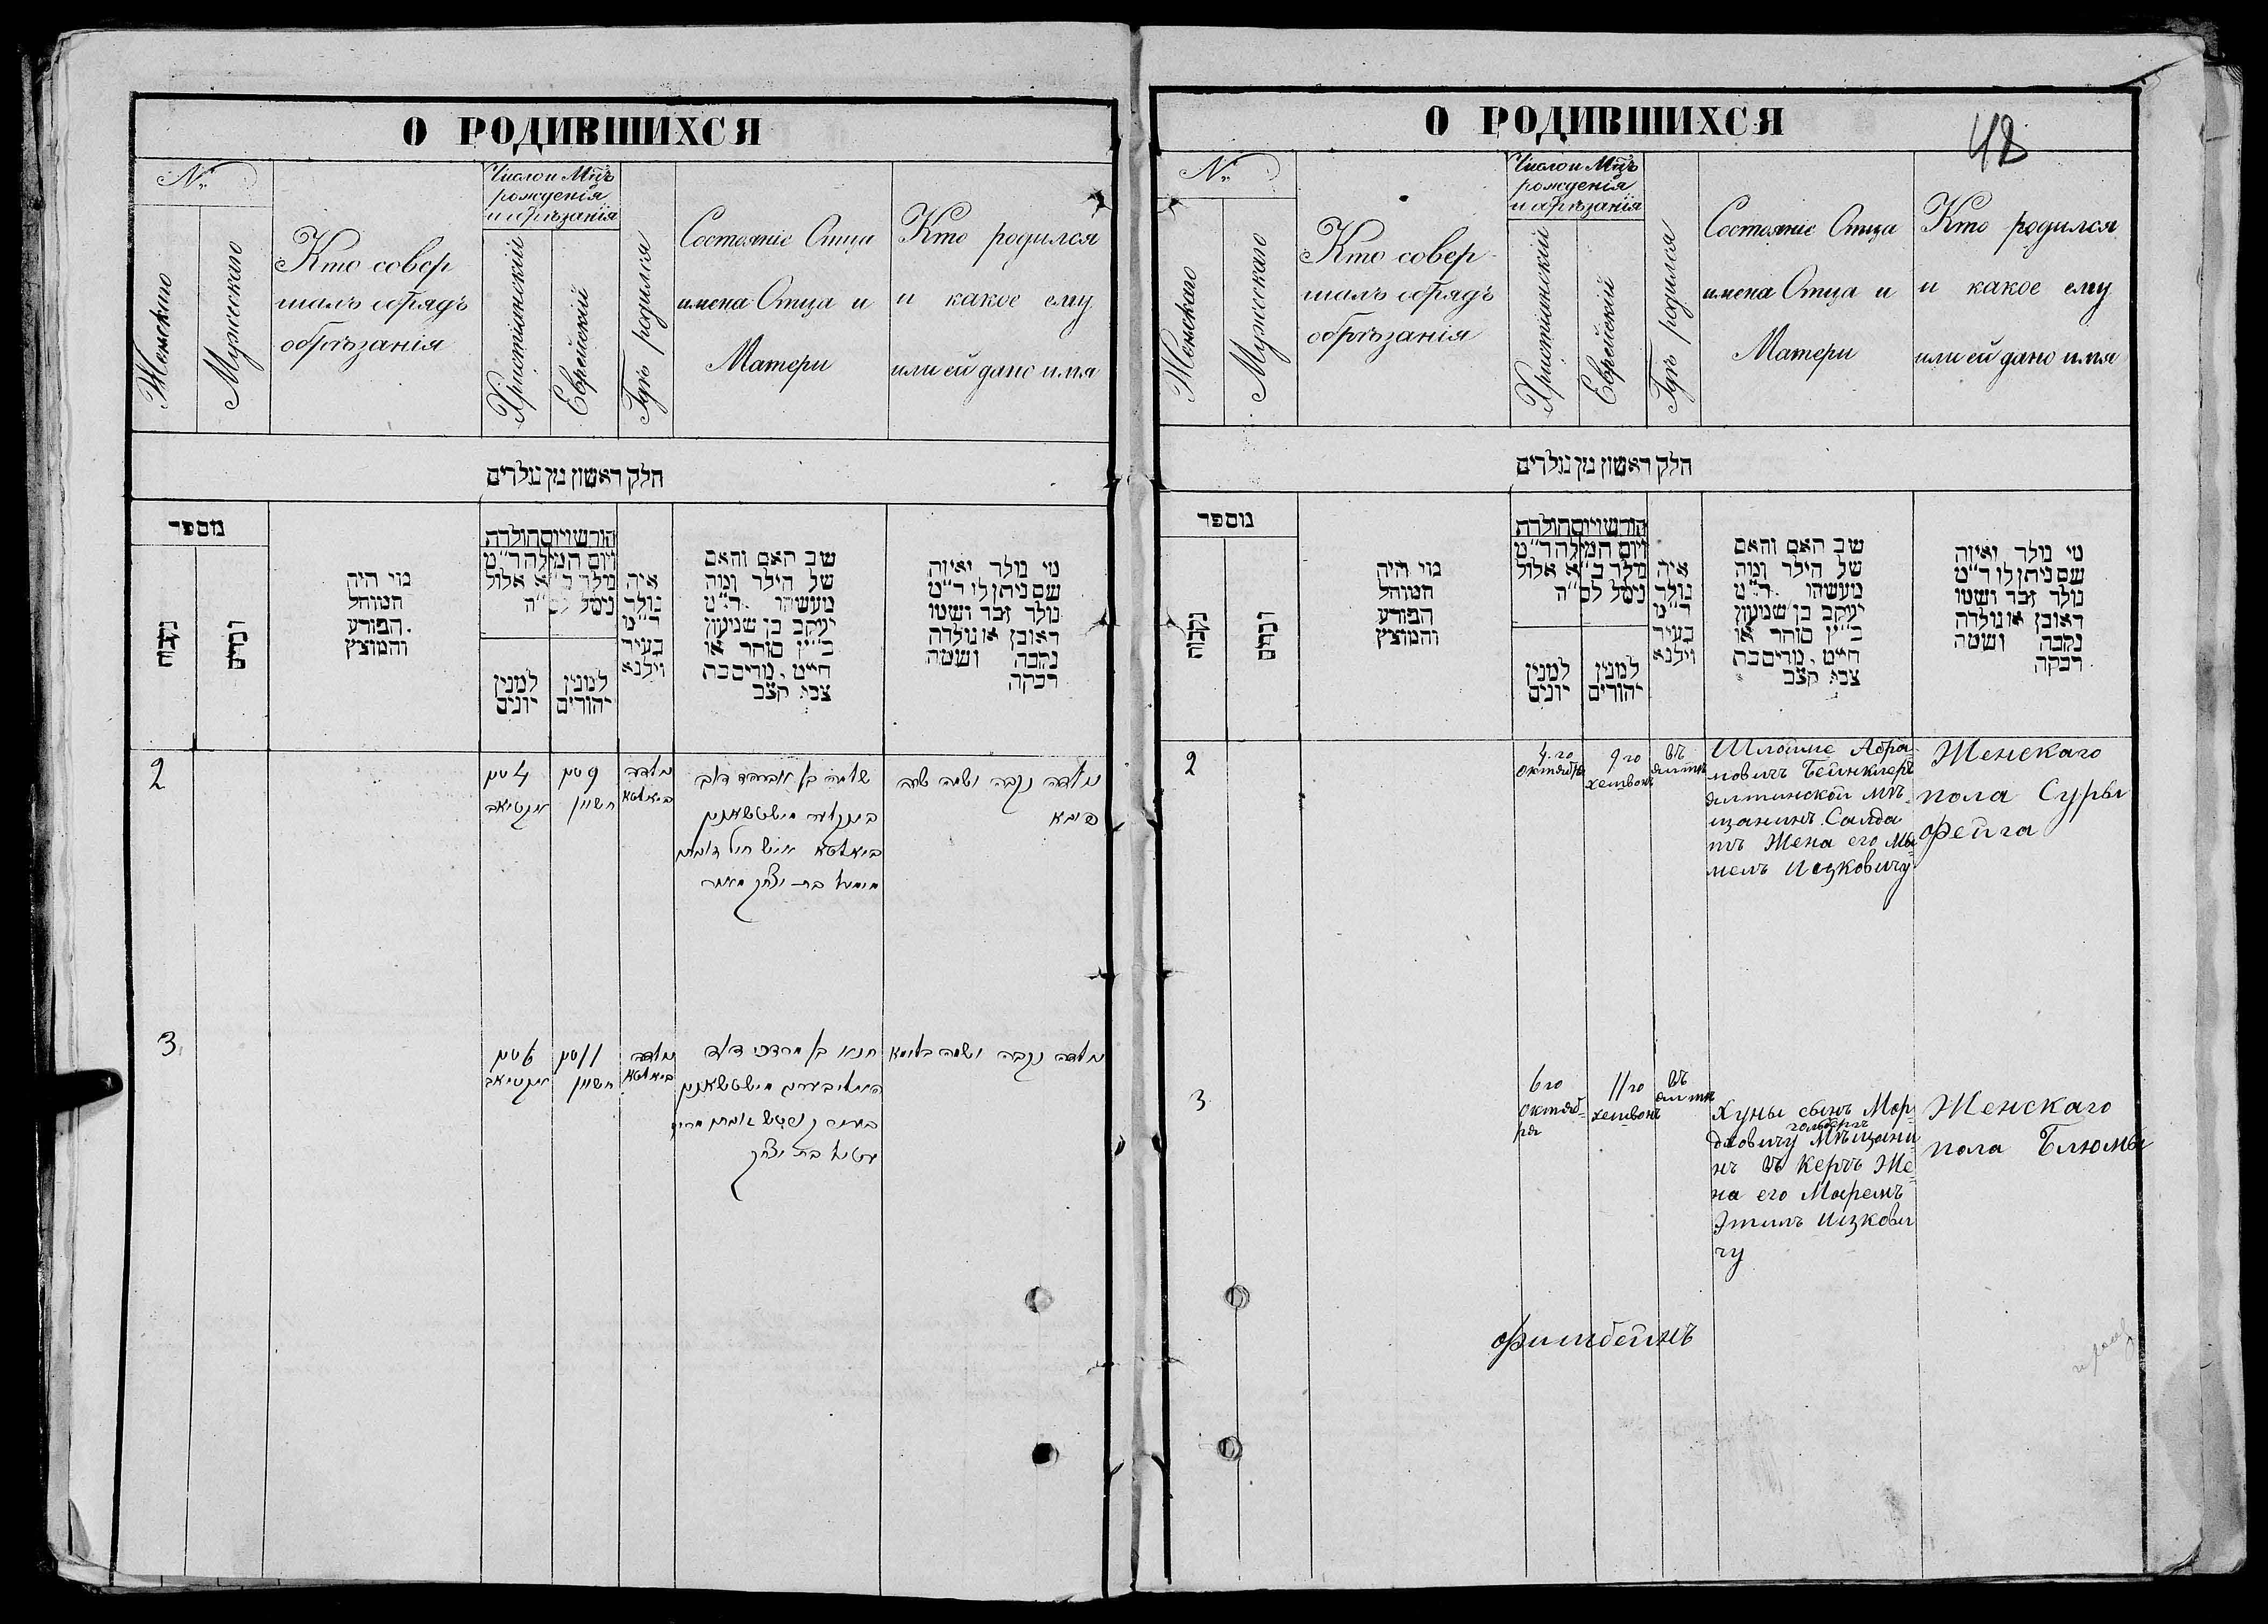 О РОДИВШИХСЯ
№
Женскаго
Мужескаго
Кто совер
шалъ обрядъ
обрѣзанія
Число и Мцъ
рожденія
и обрѣзанія
Христіянскій
Еврейскій
Гдѣ родился
Состояніе Отца
имена Отца и
Матери
Кто родился
и какое ему
или ей дано имя
חלק ראשון מן נולדים
מספר
נקבות
זכרים
מי היה
המוהל
הפורע
והמוצץ
חודש ויום הולדת
ויום המילה ד"מ
נולד כ"א אלול
נימל לס"ה
למנין
יונים
למנין
יהודים
איה
נולד
ד"מ
בעיר
וילנא
שב האם והאם
של הילד ומה
מעשהו ד"מ
יעקב בן שמעון
כ"ץ סוחר או
חייט, מרים בת
צבי קצב
מי נולד ואיזה
שם ניתן לו ד"מ
נולד זכר ושמו
ראובן או נולדה
נקבה ושמה
רבקה
2
4
9 חשוון
נולדה
שלמה בן אברהם דוב
בת יצחק
נולדה נקבה ושמה שרה
פייגא
3
6
11 חשוון
נולדה
חנא בן מרדכי דוד
בת יצחק
נולדה נקבה ושמה בלומא
О РОДИВШИХСЯ
48
№
Женскаго
Мужескаго
Кто совер
шалъ обрядъ
обрѣзанія
Число и Мцъ
рожденія
и обрѣзанія
Христіянскій
Еврейскій
Гдѣ родился
Состояніе Отца
имена Отца и
Матери
Кто родился
и какое ему
или ей дано имя
חלק ראשון מן נולדים
מספר
נקבות
זכרים
מי היה
המוהל
הפורע
והמוצץ
חודש ויום הולדת
ויום המילה ד"מ
נולד כ"א אלול
נימל לס"ה
למנין
יונים
למנין
יהודים
איה
נולד
ד"מ
בעיר
וילנא
שב האם והאם
של הילד ומה
מעשהו ד"מ
יעקב בן שמעון
כ"ץ סוחר או
חייט, מרים בת
צבי קצב
מי נולד ואיזה
שם ניתן לו ד"מ
נולד זכר ושמו
ראובן או נולדה
נקבה ושמה
רבקה
2
4 го
октября
9 го
хешвонъ
въ
Ялтѣ
Шлойме Абра-
мовичъ
Ялтинской мѣ-
щанинъ Солда
тъ Жена его Мы-
мелъ Ицковичу
Женскаго
пола Суры
Фейга
3
6 го
октяб-
ря
11 го
хешвонъ
въ
Ялтѣ
Хуны сынъ Мор-
дковичу Мѣщани
нъ въ Керчъ Же-
на его Мыремъ
Этилъ Ицкови
чу
Женскаго
пола Блюмы
Фишбейнъ